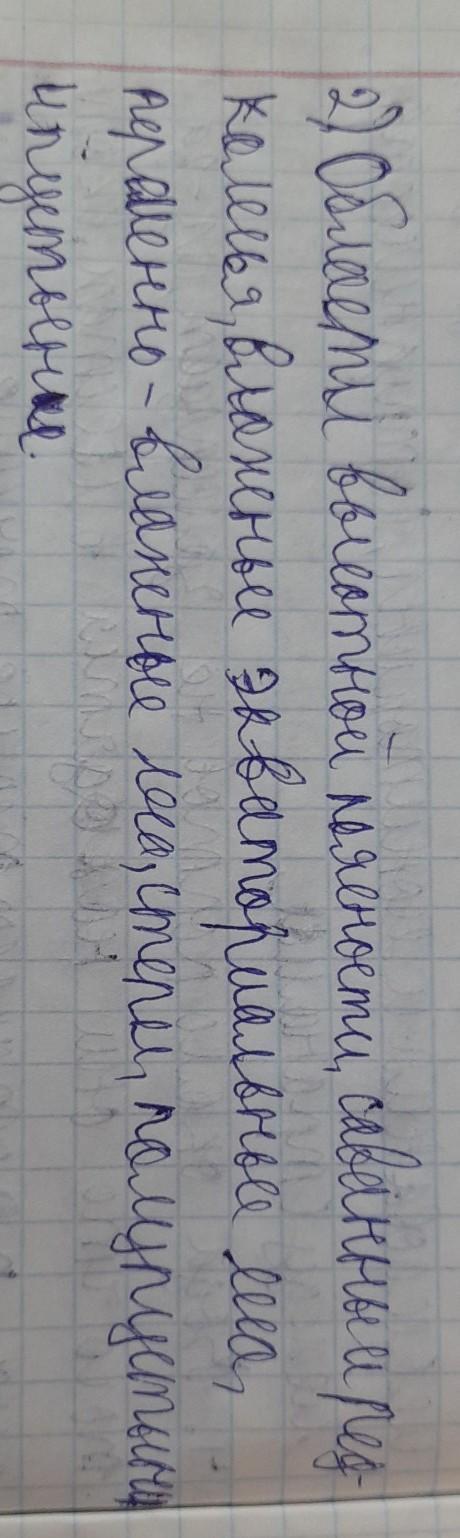 2) Области высотной поясности, саванны и ред-
колесья, влажные экваториальные леса,
переменно-влажные леса, степи, полупустыни
и пустыни.